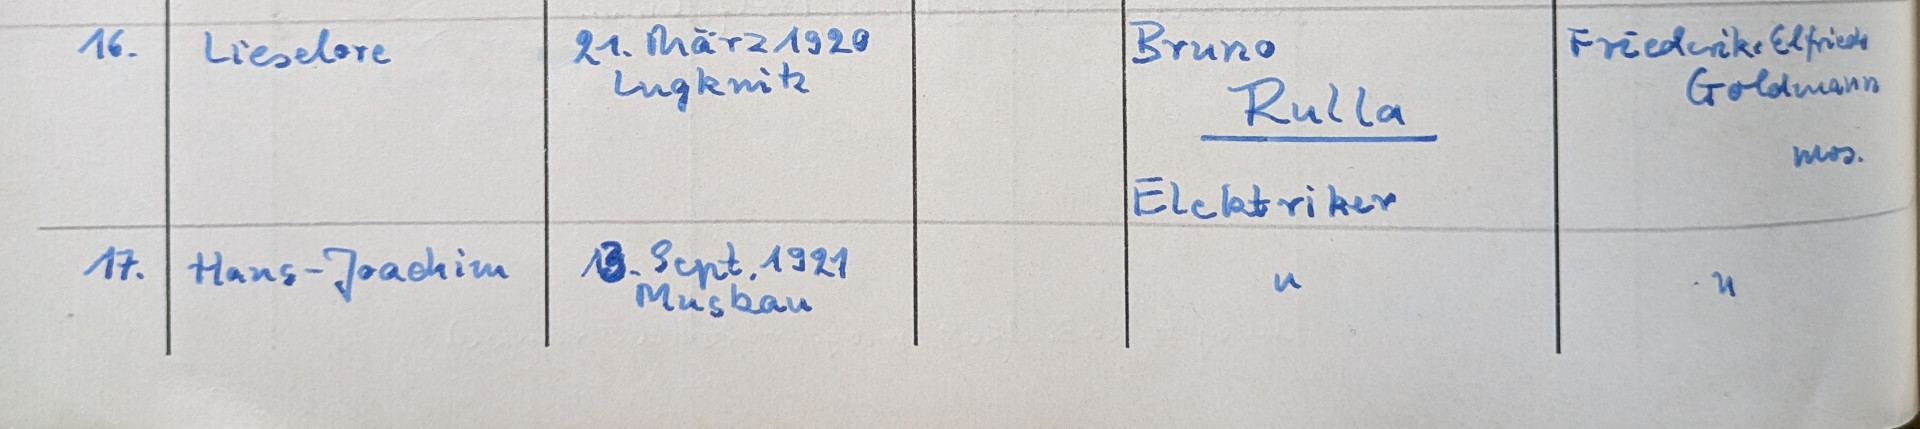 16. Lieselore 21. März 1920 Bruno Friederike Elfriede
Lugknitz Rulla Goldmann
mos.
Elektriker
17. Hans-Joachim 13. Sept. 1921 " "
Muskau